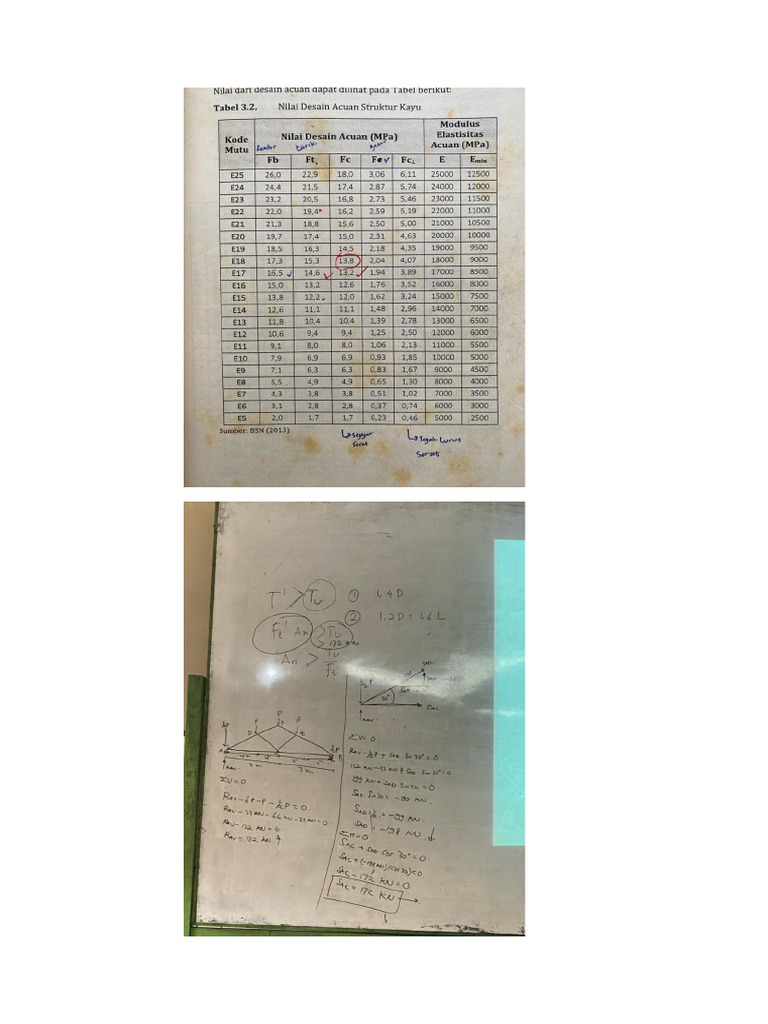 Nilai dari desain acuan dapat dilihat pada Tabel berikut:
Tabel 3.2. Nilai Desain Acuan Struktur Kayu
Kode Mutu Nilai Desain Acuan (MPa) Modulus Elastisitas Acuan (MPa)
lentur tarik geser
Fb Ft Fc Fv Fc⊥ E Emin
E25 26,0 22,9 18,0 3,06 6,11 25000 12500
E24 24,4 21,5 17,4 2,87 5,74 24000 12000
E23 23,2 20,5 16,8 2,73 5,46 23000 11500
E22 22,0 19,4 16,2 2,59 5,19 22000 11000
E21 21,3 18,8 15,6 2,50 5,00 21000 10500
E20 19,7 17,4 15,0 2,31 4,63 20000 10000
E19 18,5 16,3 14,5 2,18 4,35 19000 9500
E18 17,3 15,3 13,8 2,04 4,07 18000 9000
E17 16,5 14,6 13,2 1,94 3,89 17000 8500
E16 15,0 13,2 12,6 1,76 3,52 16000 8000
E15 13,8 12,2 12,0 1,62 3,24 15000 7500
E14 12,6 11,1 11,1 1,48 2,96 14000 7000
E13 11,8 10,4 10,4 1,39 2,78 13000 6500
E12 10,6 9,4 9,4 1,25 2,50 12000 6000
E11 9,1 8,0 8,0 1,06 2,13 11000 5500
E10 7,9 6,9 6,9 0,93 1,85 10000 5000
E9 7,1 6,3 6,3 0,83 1,67 9000 4500
E8 5,5 4,9 4,9 0,65 1,30 8000 4000
E7 4,3 3,8 3,8 0,51 1,02 7000 3500
E6 3,1 2,8 2,8 0,37 0,74 6000 3000
E5 2,0 1,7 1,7 0,23 0,46 5000 2500
Sumber: BSN (2013)
↳ Sejajar
Serat
↳ Tegak Lurus
Serat
T' > Tu ① 1,4D
② 1,2D + 1,6L
Ft' An > Tu
> 172 kN
An > Tu
Ft'
½P P P P ½P
D A B
RAV
3 m 3 m
ΣV=0
RAV - ½P - P - ½P = 0
RAV - 33 kN - 66 kN - 33 kN = 0
RAV - 132 kN = 0
RAV = 132 kN ↑
½P
30°
SAC
RAV
ΣV=0
RAV - ½P + SAD Sin 30° = 0
132 kN - 33 kN + SAD Sin 30° = 0
99 kN + SAD Sin 30 = 0
SAD Sin 30 = -99 kN
SAD ½ = -99 kN
SAD = -198 kN ↓
ΣH=0
SAC + SAD Cos 30° = 0
SAC + (-198 kN)(Cos 30) = 0
SAC - 172 kN = 0
SAC = 172 kN →